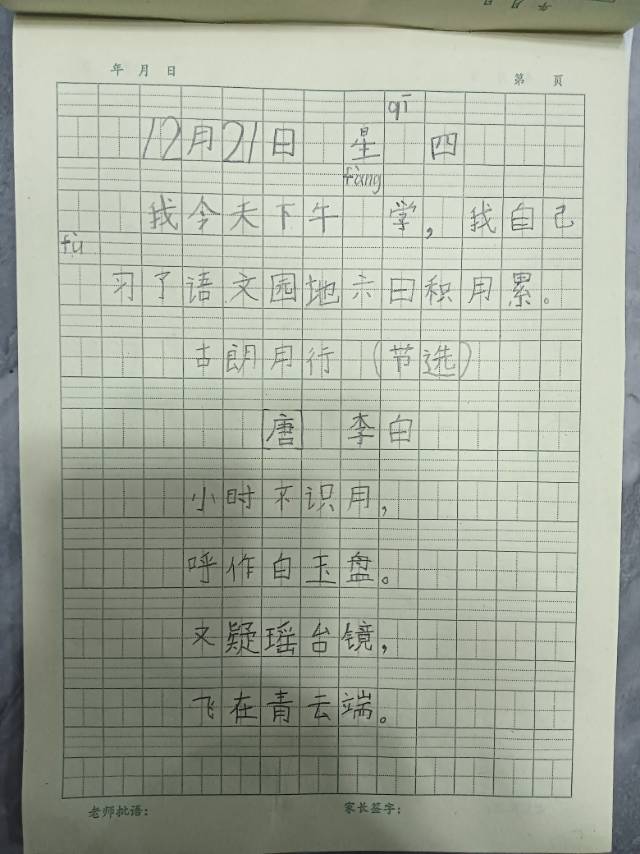 年 月 日
年 月 日 第 页
qī
12月21日 星 四
fàng
我今天下午 学，我自己
fù
习了语文园地六日积用累。
古朗用行（节选）
[唐] 李白
小时不识用，
呼作白玉盘。
又疑瑶台镜，
飞在青云端。
老师批语： 家长签字：